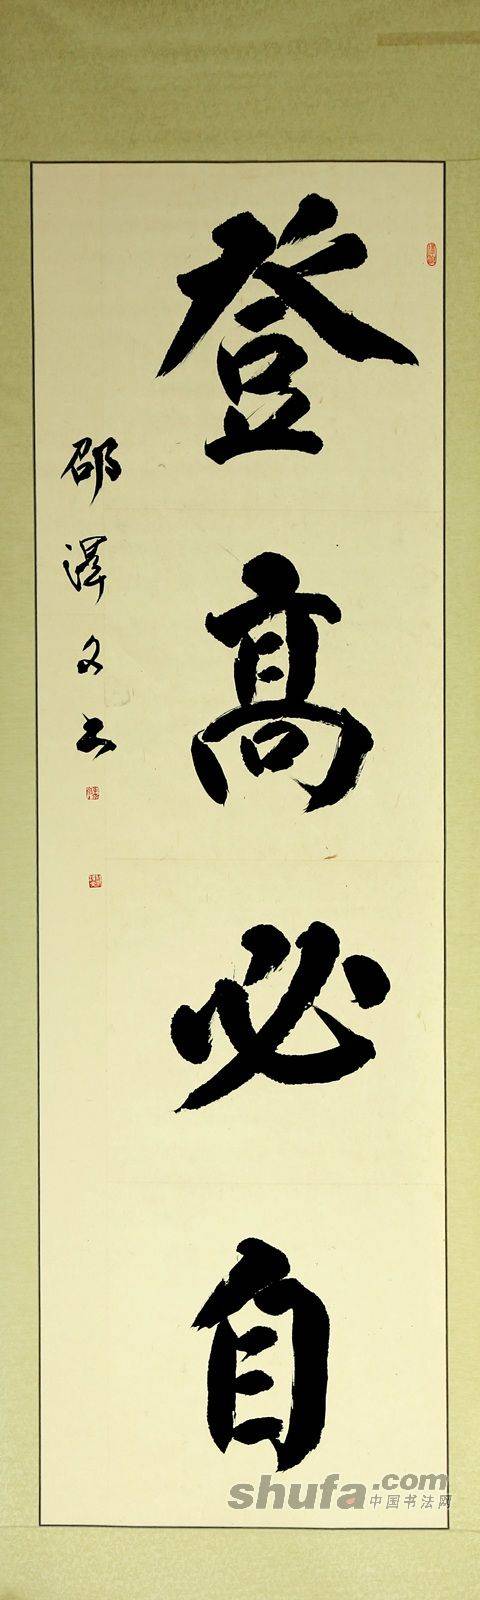 登高必自
邵泽文书
shufa.com
中国书法网